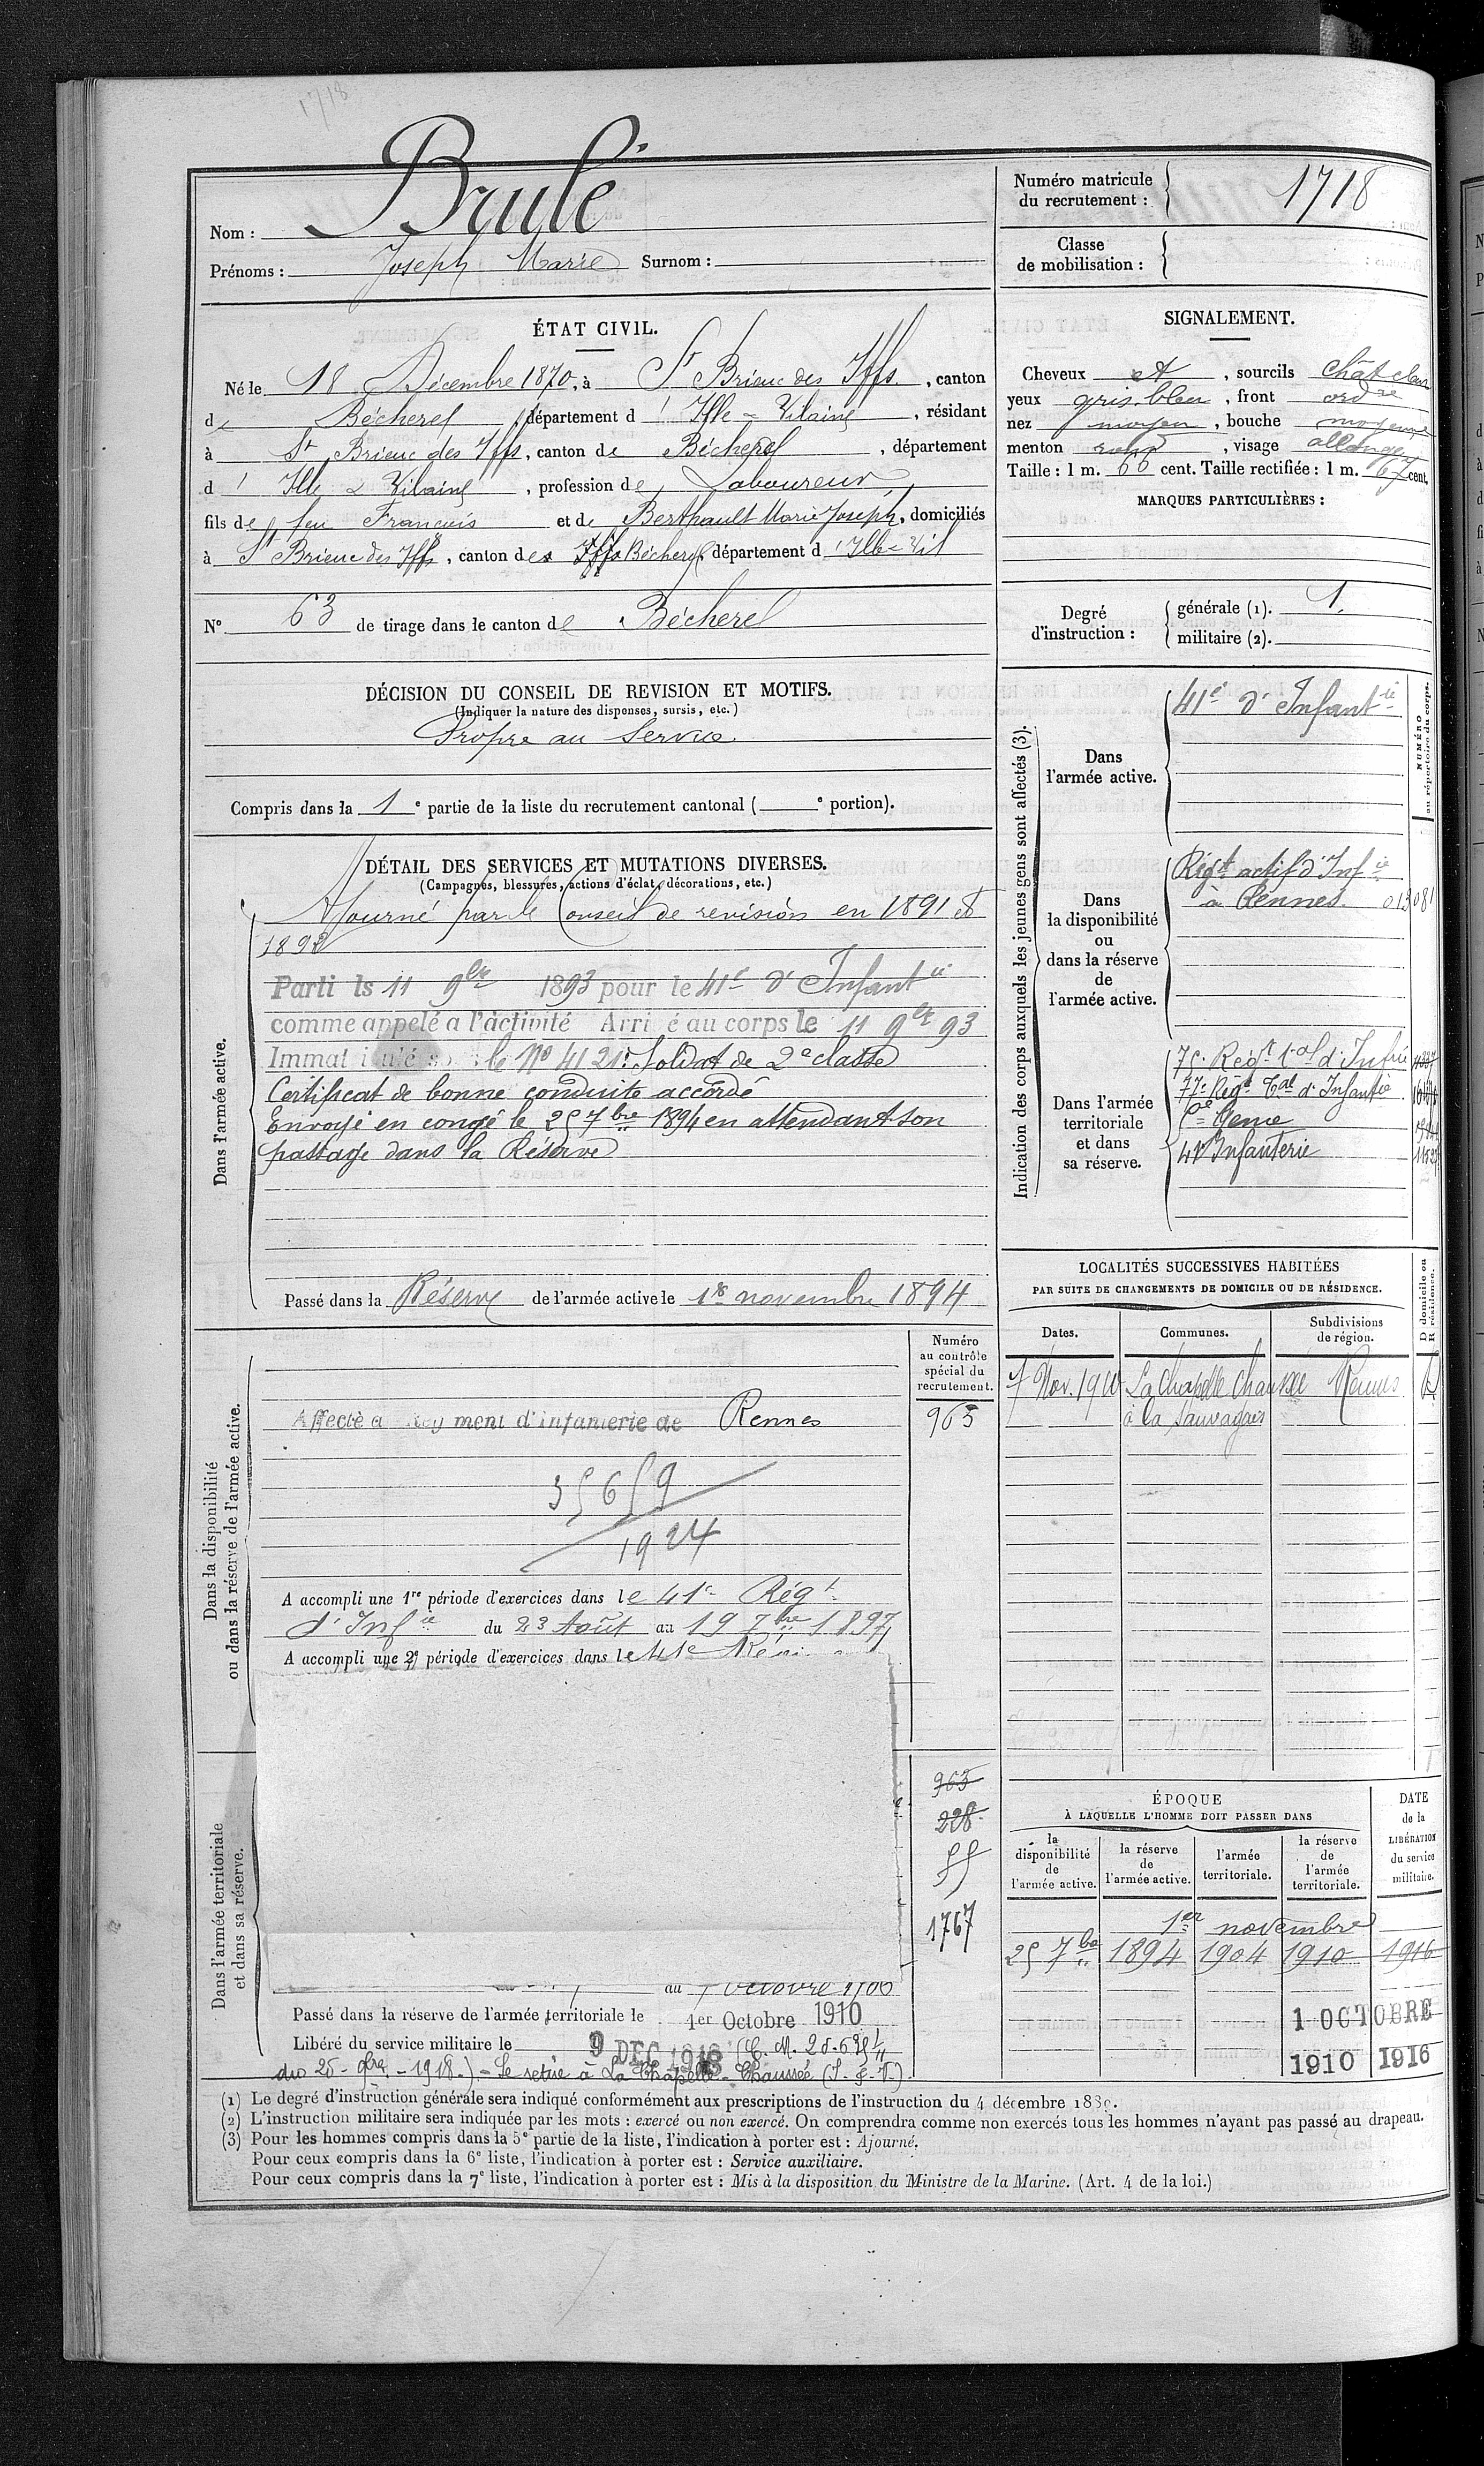 1718
Nom : Brulé
Prénoms : Joseph Marie Surnom :
Numéro matricule du recrutement : 1718
Classe de mobilisation :
ÉTAT CIVIL.
Né le 18 Décembre 1870, à St Brieuc des Iffs, canton
de Bécherel, département d'Ille-Vilaine, résidant
à St Brieuc des Iffs, canton de Bécherel, département
d'Ille & Vilaine, profession de Laboureur
fils de feu François et de Berthault Marie Joseph, domiciliés
à St Brieuc des Iffs, canton des Iffs Bécherel département d'Ille-Vil
N° 63 de tirage dans le canton de Bécherel
SIGNALEMENT.
Cheveux et, sourcils chât clair
yeux gris bleu, front ordre
nez moyen, bouche moyenne
menton rond, visage allongé
Taille : 1 m. 66 cent. Taille rectifiée : 1 m. 67 cent.
MARQUES PARTICULIÈRES :
Degré d'instruction : générale (1). 1.
militaire (2).
DÉCISION DU CONSEIL DE REVISION ET MOTIFS.
(Indiquer la nature des dispenses, sursis, etc.)
Propre au service.
Compris dans la 1e partie de la liste du recrutement cantonal ( e portion).
DÉTAIL DES SERVICES ET MUTATIONS DIVERSES.
(Campagnes, blessures, actions d'éclat, décorations, etc.)
Dans l'armée active.
Ajourné par le Conseil de revision en 1891 et
1892
Parti le 11 9bre 1893 pour le 41e d'Infantie
comme appelé a l'activité Arrivé au corps le 11 9bre 93
Immatriculé sous le No 4121. Soldat de 2e classe
Certificat de bonne conduite accordé
Envoyé en congé le 25 7bre 1894 en attendant son
passage dans la Réserve
Passé dans la Réserve de l'armée active le 1er novembre 1894
Indication des corps auxquels les jeunes gens sont affectés (3).
NUMÉRO au répertoire du corps.
Dans l'armée active.
41e d'Infantie
Dans la disponibilité ou dans la réserve de l'armée active.
Régt actif d'Infie
à Rennes. 013081
Dans l'armée territoriale et dans sa réserve.
75e Régt t-al d'Infrie
77e Régt Tal d'Infantie
Génie
41e Infanterie
LOCALITÉS SUCCESSIVES HABITÉES
PAR SUITE DE CHANGEMENTS DE DOMICILE OU DE RÉSIDENCE.
Dates. Communes. Subdivisions de région. D domicile ou R résidence.
7 Nov. 1910 La Chapelle Chaussée Rennes D
à la Sauvagais
Dans la disponibilité ou dans la réserve de l'armée active.
Numéro au contrôle spécial du recrutement.
Affecté a Régiment d'infanterie de Rennes 963
35659
1924
A accompli une 1re période d'exercices dans le 41e Régt
d'Infie du 23 Août au 19 7bre 1897
A accompli une 2e période d'exercices dans le 41e Régi
Dans l'armée territoriale et dans sa réserve.
963
228
55
1767
au 7 octobre 1906
Passé dans la réserve de l'armée territoriale le 1er Octobre 1910
Libéré du service militaire le 9 DEC 1918 (C. M.
du 25-9bre-1918.) - Se retire à La Chapelle-Chaussée (I-&-V)
ÉPOQUE
À LAQUELLE L'HOMME DOIT PASSER DANS
la disponibilité de l'armée active. la réserve de l'armée active. l'armée territoriale. la réserve de l'armée territoriale. DATE de la LIBÉRATION du service militaire.
1er novembre
25 7bre 1894 1904 1910 1916
1 OCTOBRE
1910 1916
(1) Le degré d'instruction générale sera indiqué conformément aux prescriptions de l'instruction du 4 décembre 1889.
(2) L'instruction militaire sera indiquée par les mots : exercé ou non exercé. On comprendra comme non exercés tous les hommes n'ayant pas passé au drapeau.
(3) Pour les hommes compris dans la 5e partie de la liste, l'indication à porter est : Ajourné.
Pour ceux compris dans la 6e liste, l'indication à porter est : Service auxiliaire.
Pour ceux compris dans la 7e liste, l'indication à porter est : Mis à la disposition du Ministre de la Marine. (Art. 4 de la loi.)